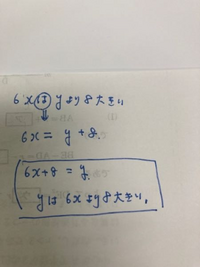 6xは yより8大きい
⇓
6x = y + 8.
6x+8 = y.
yは6xより8大きい,